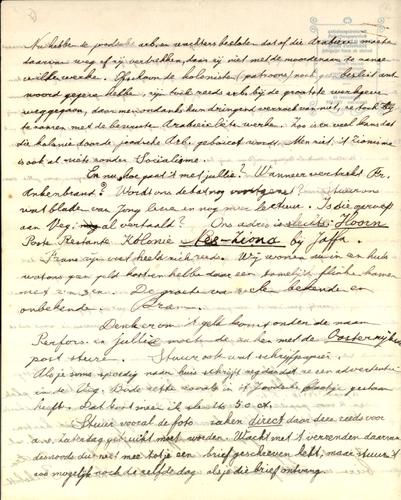 Nu hebben de joodsche arb. en wachters besloten dat of die moeten
daarvan weg of zij vertrekken, daar zij niet met de moordenaars te samen
willen werken. Ofschoon de kolonisten (patroons) noch beslist ant-
woord gegeven hebben, zijn reeds arb. bij de grootste werkgever
weggegaan, daar men ondanks hun dringend verzoek van
te samen met de Arabieren te werken. Zoo is er veel kans dat
die kolonie door de joodsche Arb. geboycot wordt. Men ziet, 't Zionisme
is ook al niet zonder Socialisme.
En nu hoe gaat 't met jullie? Wanneer vertrekt Br.
Ankenbrand? Wordt ons debat nog voortgezet? Stuur ons
wat bladen van Jong leven en nog meer lectuur. Is die
aan Veg. al vertaald? Ons adres is slechts: Hoorn
Poste Restante Kolonie Nes-Ziona bij Jaffa.
Frans zijn voet heelt zich reeds. Wij wonen nu in een huis
wat ons geen geld kost en hebben daar een tamelijk flinke kamer
met z'n De groeten van aan bekende en
onbekende. Bram.
Denk er om 't geld komt onder de naam
Perfors. en jullie moeten die zenden met de Oostenrijksche
post sturen. Stuur ook wat schrijfpapier.
Als je soms spoedig naar huis schrijft zeg dan dat ze een advertentie
in de Veg. Bode zetten zooals in 't joodsche blaadje gestaan
heeft. Dat kost meen ik slechts 50 ct.
Stuur vooral de foto zaken direct daar deze reeds voor
a.s. Zaterdag gebruikt moet worden. Wacht met 't verzenden daarvan
desnoods dus niet meer tot je een brief geschreven hebt, maar stuur 't
zoo mogelijk noch dezelfde dag als je die brief ontvang